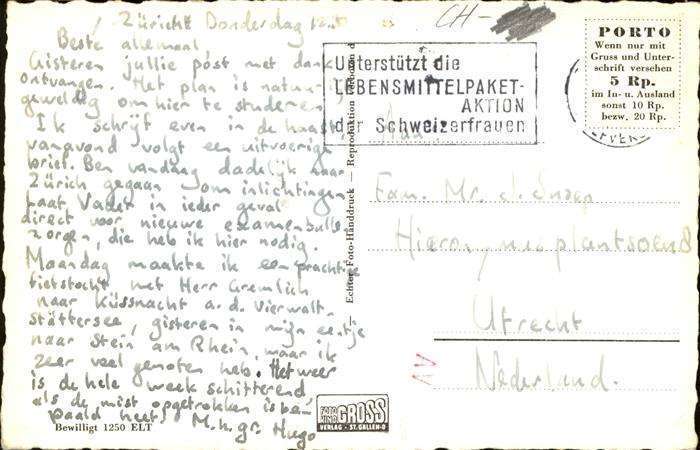 Zürich, Donderdag
Beste allemaal,
Gisteren jullie post met dank
ontvangen. Het plan is natuur
geweldig om hier te studeren,
Ik schrijf even in de haast
vanavond volgt een uitvoerige
brief. Ben vandaag dadelijk naar
Zürich gegaan om inlichtingen
Laat Vader in ieder geval
direct voor nieuwe examenbulle
zorgen, die heb ik hier nodig.
Maandag maakte ik een prachtige
fietstocht met Herr Gremlich
naar Küssnacht a.d. Vierwalt-
stättersee, gisteren in mijn eentje
naar Stein am Rhein, waar ik
zeer veel genoten heb. Het weer
is de hele week schitterend
als de mist opgetrokken is be
paald heet. M.h.gr. Hugo
Bewilligt 1250 ELT
FOTO
GROSS
VERLAG · ST. GALLEN-O
Echter Foto-Handdruck — Reproduktion verboten
CH-
Unterstützt die
LEBENSMITTELPAKET-
AKTION
der Schweizerfrauen
PORTO
Wenn nur mit
Gruss und Unter-
schrift versehen
5 Rp.
im In- u. Ausland
sonst 10 Rp.
bezw. 20 Rp.
Aan
Fam. Mr. J. Snoep
Hieronymusplantsoen 8
Utrecht
Nederland.